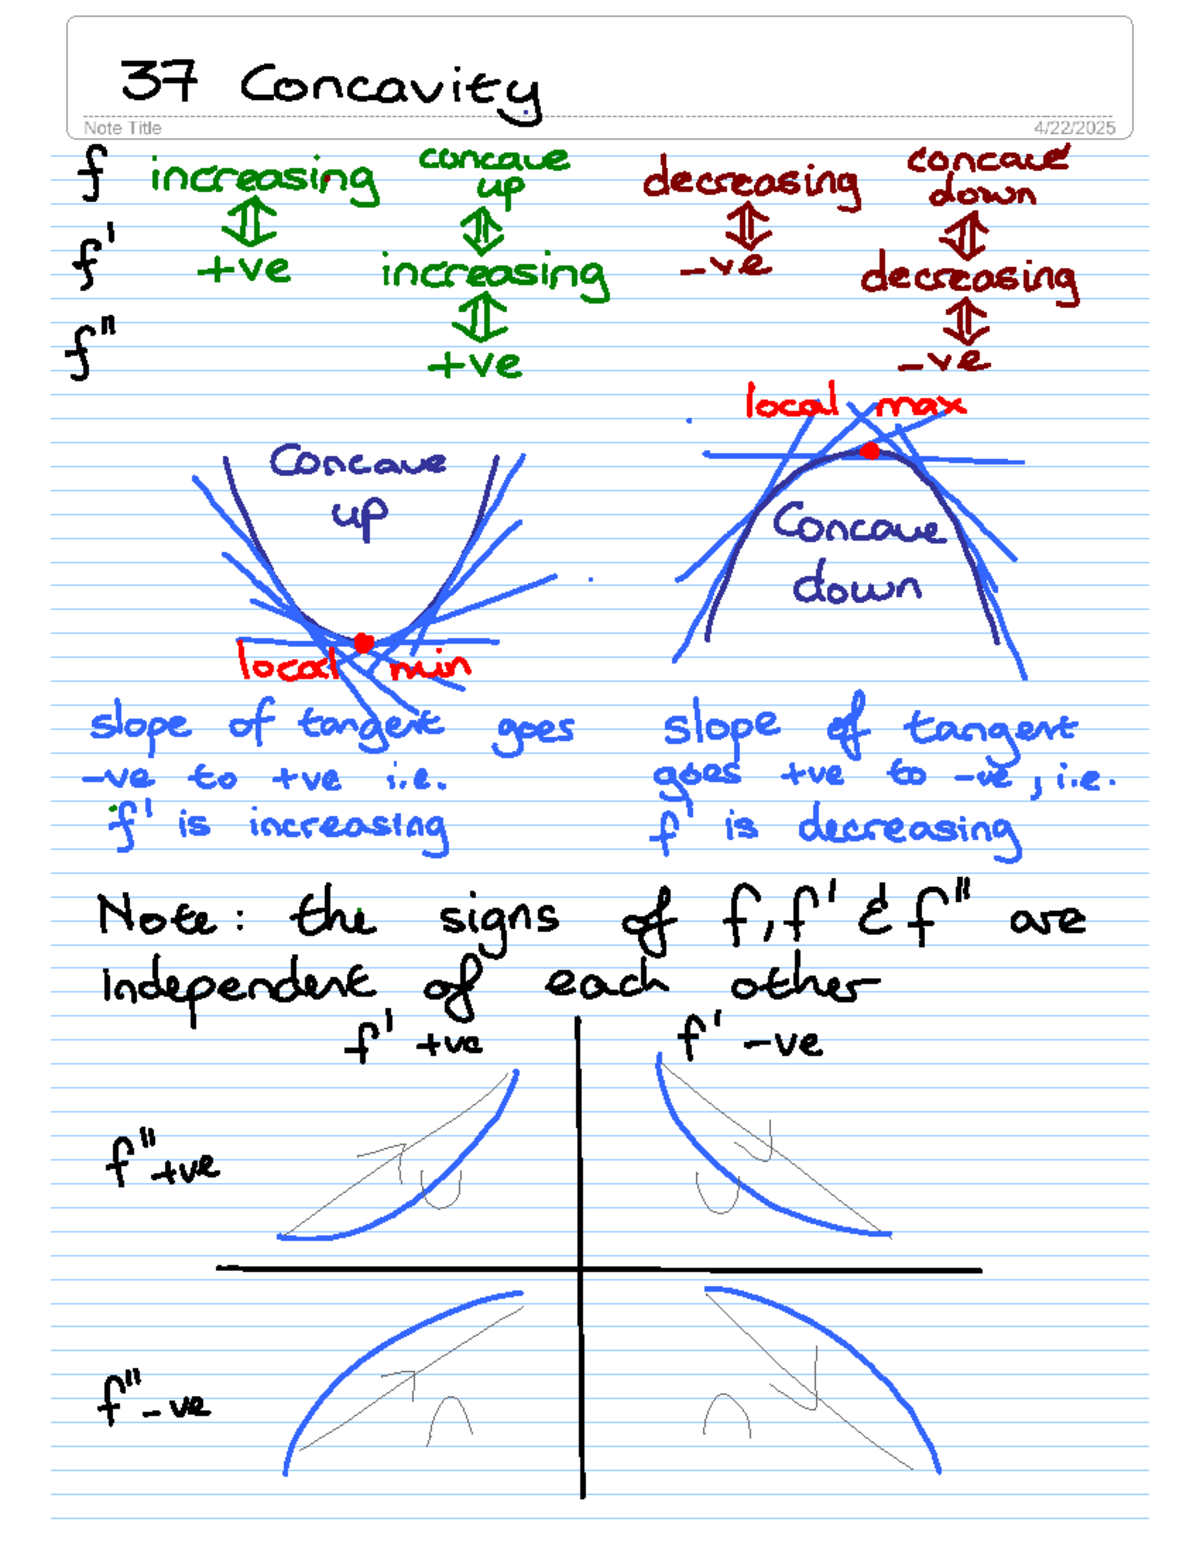 37 Concavity
Note Title 4/22/2025
f increasing concave up decreasing concave down
⇕ ⇕ ⇕ ⇕
f' +ve increasing -ve decreasing
⇕ ⇕
f" +ve -ve
local max
Concave
up
Concave
down
local min
slope of tangent goes
-ve to +ve i.e.
f' is increasing
slope of tangent
goes +ve to -ve, i.e.
f' is decreasing
Note: the signs of f, f' & f" are
independent of each other
f' +ve f' -ve
f" +ve
f" -ve